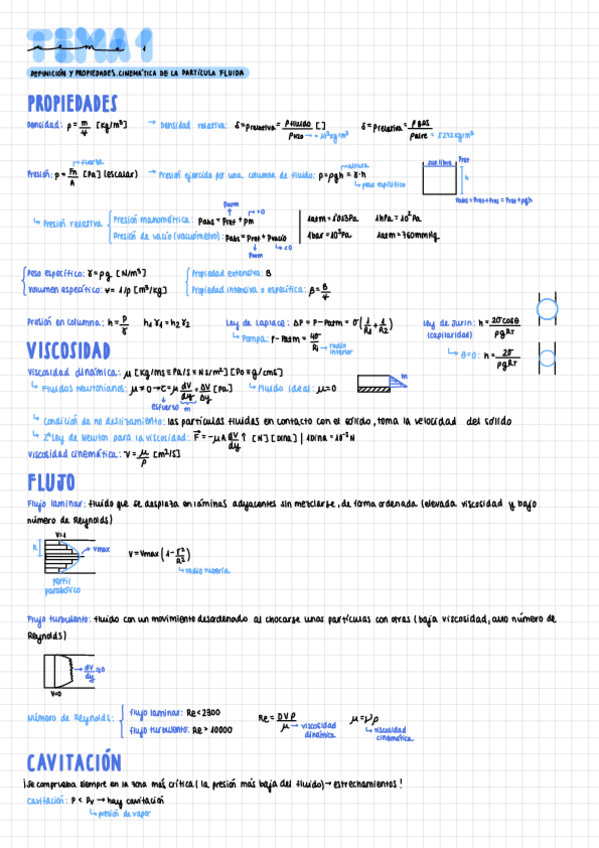 TEMA 1
DEFINICIÓN Y PROPIEDADES. CINEMÁTICA DE LA PARTÍCULA FLUIDA
PROPIEDADES
Densidad: ρ = m/V [kg/m³] → Densidad relativa: δ = ρrelativa = ρfluido/ρH2O [ ] → 10³kg/m³ δ = ρrelativa = ρgas/ρaire
Presión: p = Fn/A [Pa] (escalar) → Presión ejercida por una columna de fluido: p = ρgh = γ·h
fuerza
altura
peso específico
sup. libre Pref
h
↳ Presión relativa
Patm >0
Presión manométrica: Pabs = Pref + pm
Presión de vacío (vacuómetro): Pabs = Pref + Pvacío
Patm <0
1atm = 1013hPa 1hPa = 10²Pa
1bar = 10⁵Pa 1atm = 760mmHg
Peso específico: γ = ρg [N/m³]
Volumen específico: v = 1/ρ [m³/kg]
Propiedad extensiva: B
Propiedad intensiva o específica: β = B/V
Presión en columna: h = P/γ h1γ1 = h2γ2
Ley de Laplace: ΔP = P - Patm = σ(1/R1 + 1/R2)
↳ Pompa: P - Patm = 4σ/Ri → radio interior
Ley de Jurin: h = 2σcosθ/ρgRT
(capilaridad)
↳ θ=0: h = 2σ/ρgRT
VISCOSIDAD
Viscosidad dinámica: μ [kg/ms = Pa/s = Ns/m²] [Po = g/cms]
↳ Fluidos newtonianos: μ ≠ 0 → τ = μ dV/dy = ΔV/Δy [Pa] ↳ Fluido ideal: μ = 0
esfuerzo m
m
↳ Condición de no deslizamiento: las partículas fluidas en contacto con el sólido, toma la velocidad del sólido
↳ 2ª Ley de Newton para la viscosidad: F = -μA dV/dy ↑ [N] [Dina] | 1Dina = 10⁻⁵N
Viscosidad cinemática: ν = μ/ρ [m²/s]
FLUJO
Flujo laminar: fluido que se desplaza en láminas adyacentes sin mezclarse, de forma ordenada (elevada viscosidad y bajo
número de Reynolds)
R
Vmax
V = Vmax (1 - r²/R²)
↳ radio tubería
perfil
parabólico
Flujo turbulento: fluido con un movimiento desordenado al chocarse unas partículas con otras (baja viscosidad, alto número de
Reynolds)
dV/dy ≥ 0
V=0
Número de Reynolds:
flujo laminar: Re < 2300
flujo turbulento: Re > 10000
Re = DVρ/μ → viscosidad dinámica
μ = νρ
↳ viscosidad cinemática
CAVITACIÓN
¡Se comprueba siempre en la zona más crítica (la presión más baja del fluido) → estrechamientos!
Cavitación: P < Pv → hay cavitación
↳ presión de vapor